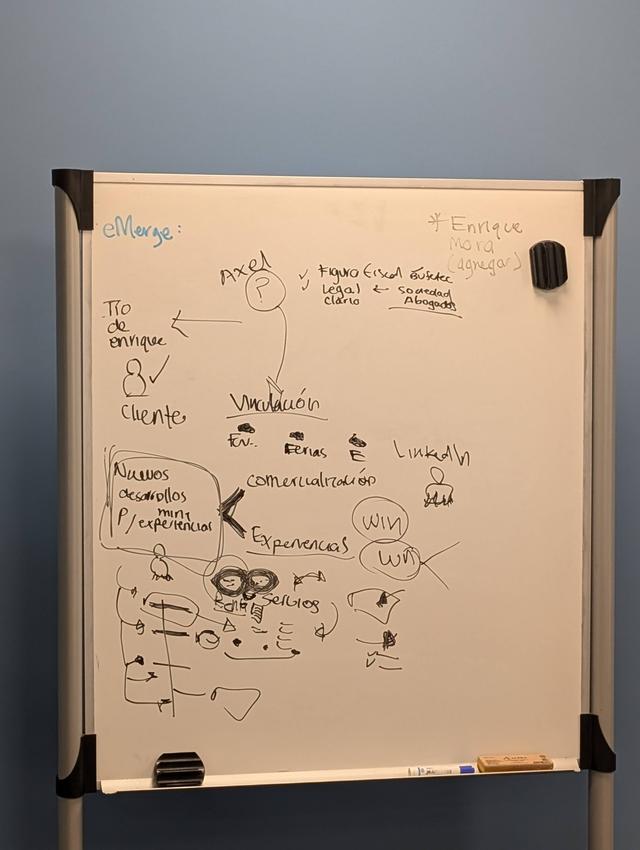 eMerge:
* Enrique
Mora
(agregar)
Axel
?
✓ Figura Fiscal Bufetec
✓ Legal ← Sociedad
Clario Abogados
Tío
de
enrique
✓
Cliente
Vinculación
Ferias
E
LinkedIn
Nuevos
desarrollos
P/experiencias
comercialización
Experiencias
win
win
Servicios